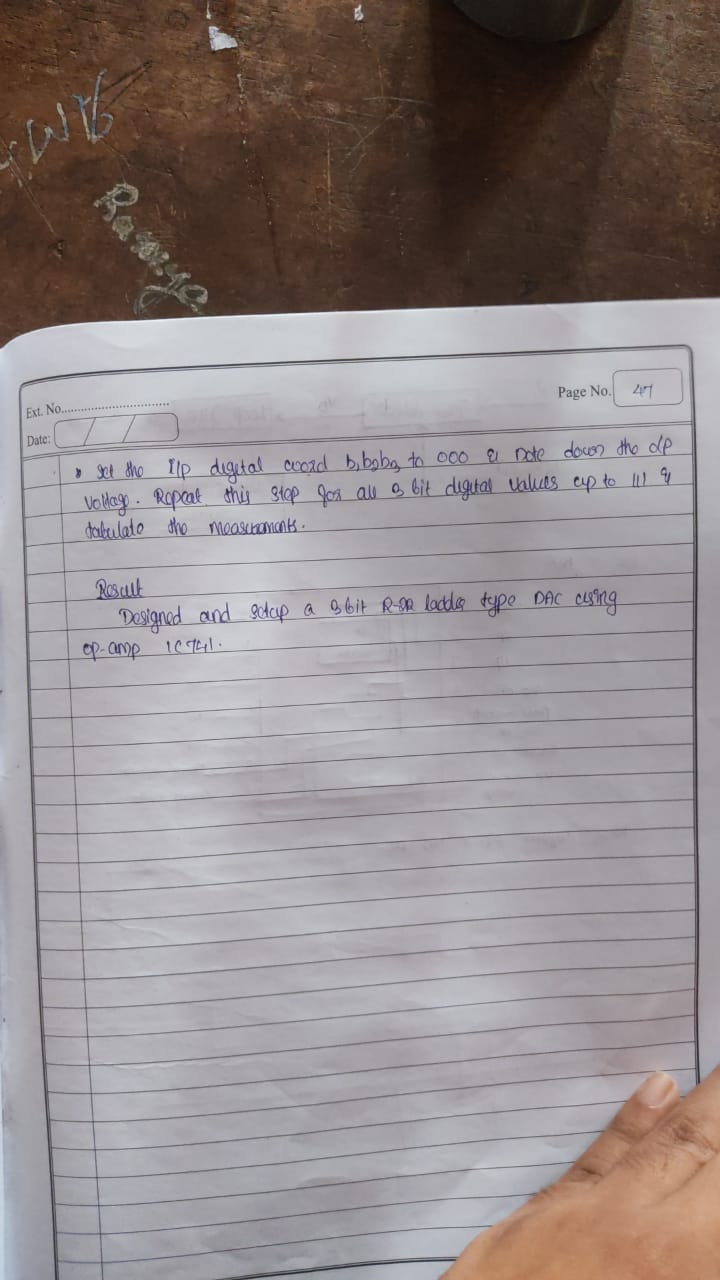 Ext. No..............................
Page No. 47
Date:
• set the i/p digital word b1b2b3 to 000 & note down the o/p
voltage. Repeat this step for all 3 bit digital values up to 111 &
tabulate the measurements.
Result
Designed and setup a 3 bit R-2R ladder type DAC using
op-amp IC 741.